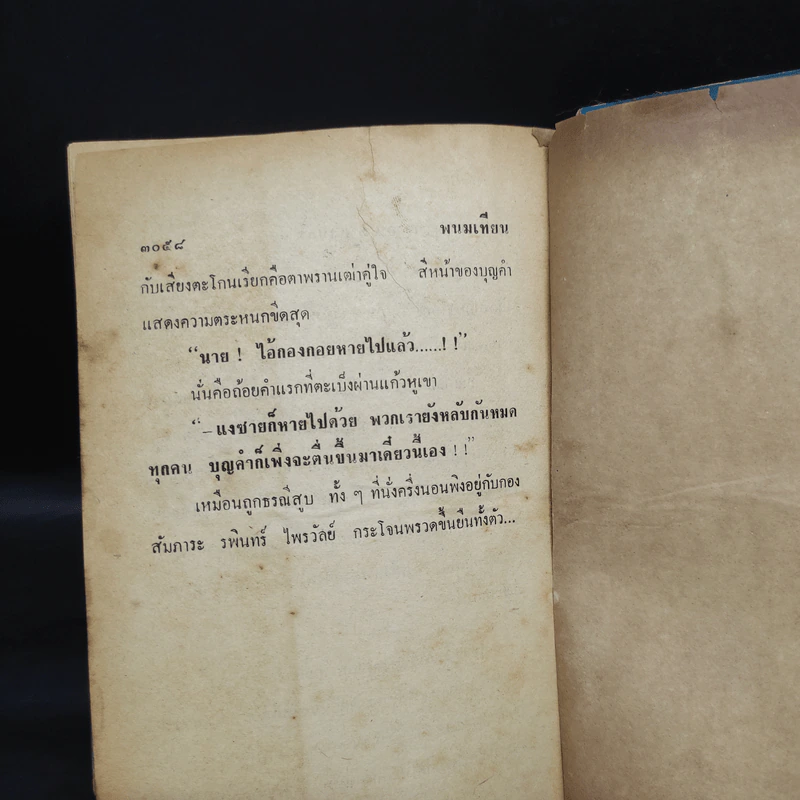 ๓๐๕๘ พนมเทียน
กับเสียงตะโกนเรียกคือตาพรานเฒ่าคู่ใจ สีหน้าของบุญคำ
แสดงความตระหนกขีดสุด
“นาย ! ไอ้กองกอยหายไปแล้ว......! !”
นั่นคือถ้อยคำแรกที่ตะเบ็งผ่านแก้วหูเขา
“–แงซายก็หายไปด้วย พวกเรายังหลับกันหมด
ทุกคน บุญคำก็เพิ่งจะตื่นขึ้นมาเดี๋ยวนี้เอง ! !”
เหมือนถูกธรณีสูบ ทั้ง ๆ ที่นั่งครึ่งนอนพิงอยู่กับกอง
สัมภาระ รพินทร์ ไพรวัลย์ กระโจนพรวดขึ้นยืนทั้งตัว...